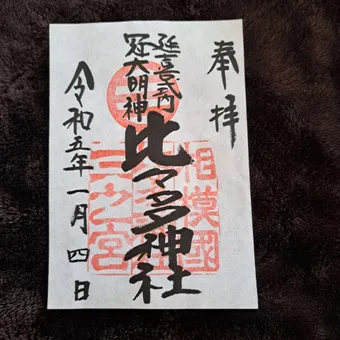 奉拝
延喜式内
冠大明神
比々多神社
相模國
三之宮
令和五年一月四日